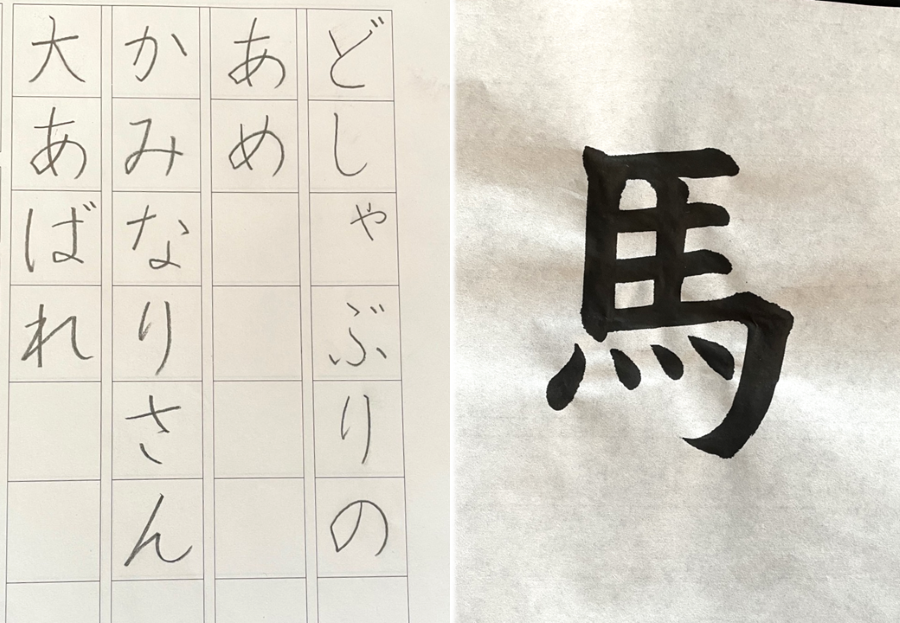 どしゃぶりの
あめ
かみなりさん
大あばれ
馬